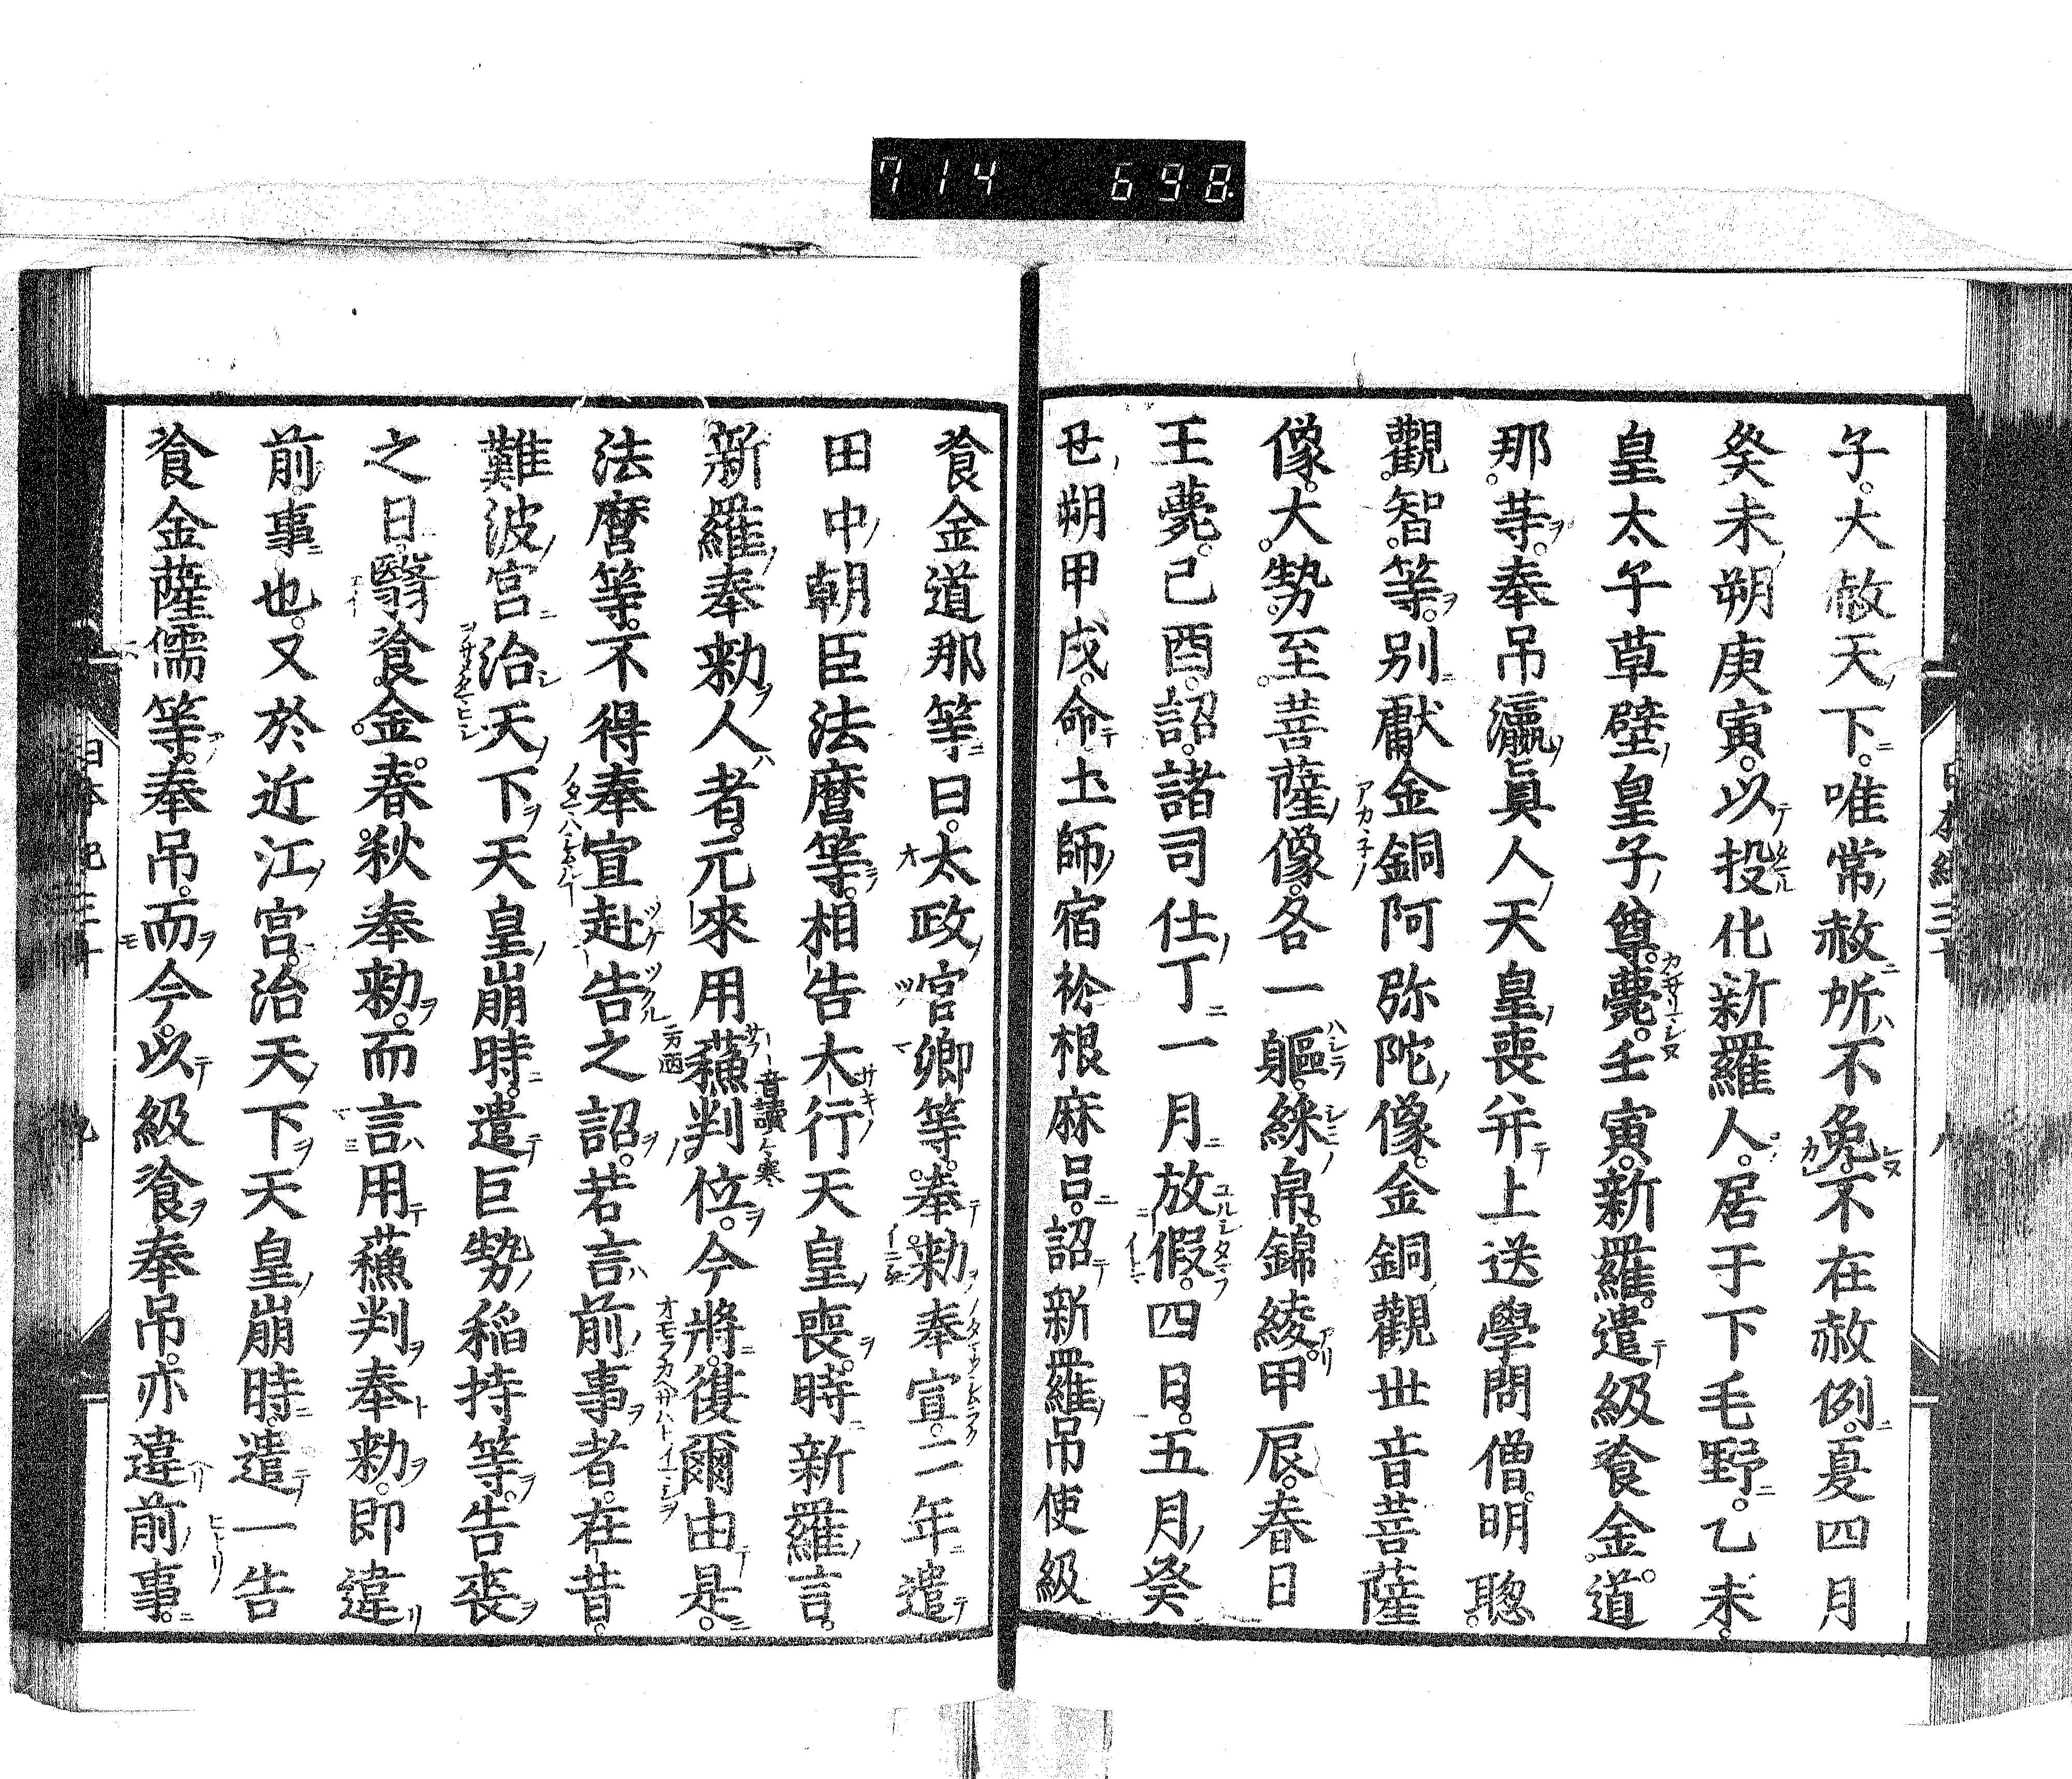 714 698
子大赦天下唯常赦所不免不在赦例夏四月
癸未朔庚寅以投化新羅人居于下毛野乙未
皇太子草壁皇子尊薨壬寅新羅遣級飡金道
那等奉吊瀛眞人天皇喪并上送學問僧明聰
觀智等別獻金銅阿弥陀像金銅觀世音菩薩
像大勢至菩薩像各一軀綵帛錦綾甲辰春日
王薨己酉詔諸司仕丁一月放假四日五月癸
丑朔甲戌命土師宿祢根麻呂詔新羅吊使級
飡金道那等曰太政官卿等奉勅奉宣二年遣
田中朝臣法麿等相告大行天皇喪時新羅言
新羅奉勅人者元來用蘓判位今將復爾由是
法麿等不得奉宣赴告之詔若言前事者在昔
難波宮治天下天皇崩時遣巨勢稲持等告喪
之日翳飡金春秋奉勅而言用蘓判奉勅即違
前事也又於近江宮治天下天皇崩時遣一告
飡金薩儒等奉吊而今以級飡奉吊亦違前事